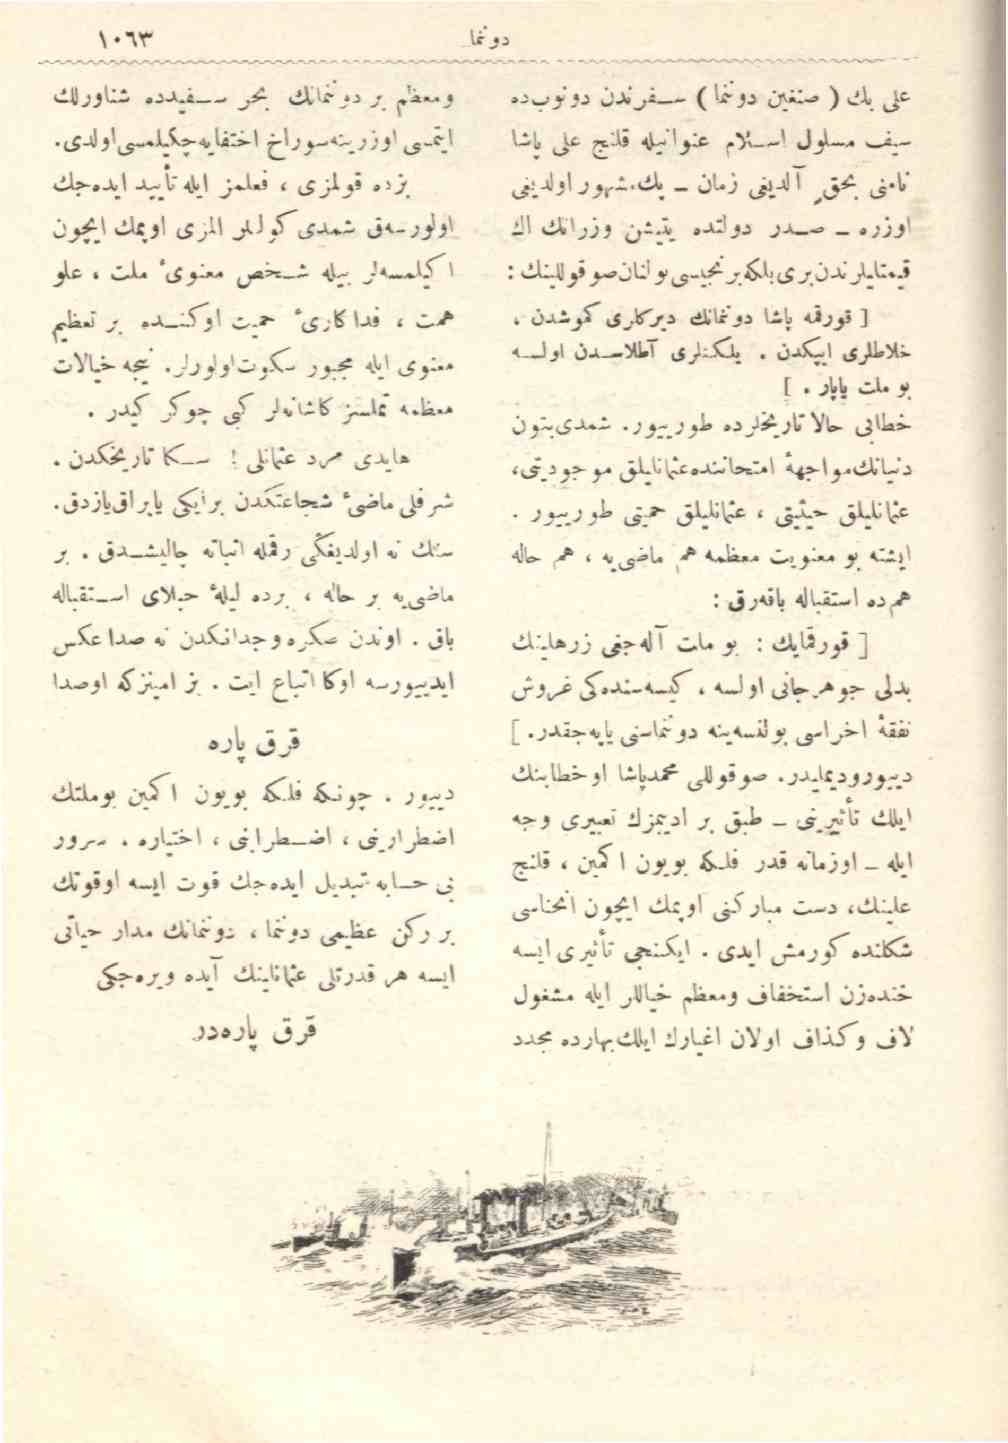 دوننما
١٠٦٣
علی بك ( صنغین دوننما ) سفرندن دونوب‌ده
سیف مسلول اسلام عنوانیله قلنج علی پاشا
نامنی بحقٍ آلدیغی زمان ـ پك مشهور اولدیغی
اوزره ـ صدر دولتده یتیشن وزرانك اك
قیمتلیلرندن بری بلكه برنجیسی بولنان صوقوللینك :
[ قورقمه پاشا دوننمانك دیركلری كموشدن ،
خلاطلری ایپكدن . یلكنلری آطلاسدن اولسه
بو ملت یاپار . ]
خطابی حالا تاریخلرده طورییور. شمدی بتون
دنیانك مواجههٔ امتحاننده عثمانلیلق موجودیتی،
عثمانلیلق حیثیتی ، عثمانلیلق حمیتی طورییور .
ایشته بو معنویت معظمه هم ماضی‌یه ، هم حاله
هم‌ده استقباله باقه‌رق :
[ قورقمایك : بو ملت آله‌جغی زرهلینك
بدلی جوهر جانی اولسه ، كیسه‌سنده‌كی غروش
نفقهٔ اخراسی بولنسه‌ینه دوننماسنی یاپه‌جقدر. ]
دییورودیملیدر. صوقوللی محمدپاشا اوخطابنك
ایلك تأثیرینی ـ طبق بر ادیبمزك تعبیری وجه
ایله ـ اوزمانه قدر فلكه بویون اكمین ، قلنج
علینك، دست مباركنی اوپمك ایچون انحناسی
شكلنده كورمش ایدی . ایكنجی تأثیری ایسه
خنده‌زن استخفاف ومعظم خیاللر ایله مشغول
لاف وكذاف اولان اغیارك ایلك بهارده مجدد
ومعظم بر دوننمانك بحر سفیدده شناورلك
ایتمسی اوزرینه سوراخ اختفایه چكیلمسی اولدی.
بزده قولمزی ، فعلمز ایله تأیید ایده‌جك
اولورسه‌ق شمدی كولنلر المزی اوپمك ایچون
اكیلمسه‌لر بیله شخص معنویٔ ملت ، علو
همت ، فداكاریٔ حمیت اوكنده بر تعظیم
معنوی ایله مجبور سكوت اولورلر. نیجه خیالات
معظمه تملسز كاشانه‌لر كبی چوكر كیدر .
هایدی مرد عثمانلی ! سكا تاریخكدن .
شرفلی ماضیٔ شجاعتكدن برایكی یاپراق یازدق.
سنك نه اولدیغكی رقمله اثباته چالیشدق . بر
ماضی‌یه بر حاله ، برده لیلهٔ حبلای استقباله
باق . اوندن صكره وجدانكدن نه صدا عكس
ایدییورسه اوكا اتباع ایت . بز امینزكه اوصدا
قرق پاره
دییور . چونكه فلكه بویون اكمین بوملتك
اضطرارینی ، اضطرابنی ، اختیاره . سرور
نی حسابه تبدیل ایده‌جك قوت ایسه اوقوتك
بر ركن عظیمی دوننما ، دوننمانك مدار حیاتی
ایسه هر قدرتلی عثمانلینك آیده ویره‌جكی
قرق پاره‌در